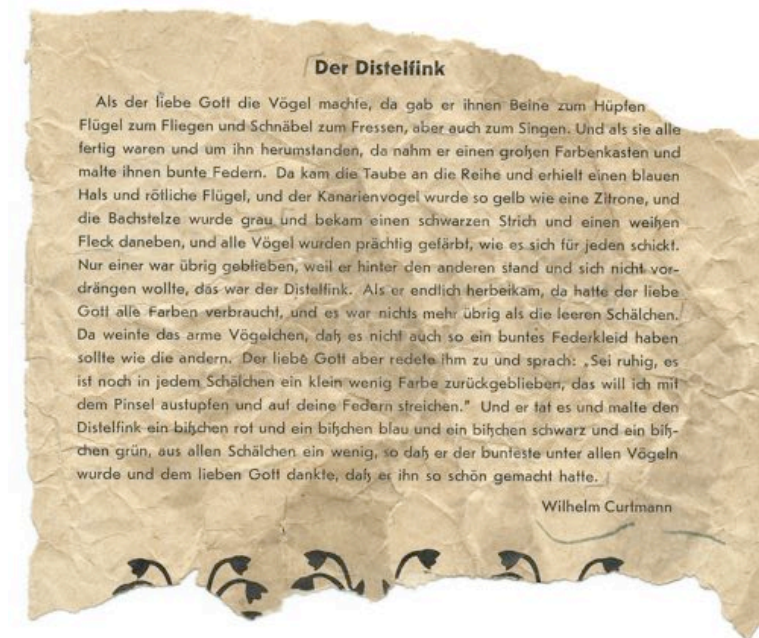 Der Distelfink
Als der liebe Gott die Vögel machte, da gab er ihnen Beine zum Hüpfen
Flügel zum Fliegen und Schnäbel zum Fressen, aber auch zum Singen. Und als sie alle
fertig waren und um ihn herumstanden, da nahm er einen großen Farbenkasten und
malte ihnen bunte Federn. Da kam die Taube an die Reihe und erhielt einen blauen
Hals und rötliche Flügel, und der Kanarienvogel wurde so gelb wie eine Zitrone, und
die Bachstelze wurde grau und bekam einen schwarzen Strich und einen weißen
Fleck daneben, und alle Vögel wurden prächtig gefärbt, wie es sich für jeden schickt.
Nur einer war übrig geblieben, weil er hinter den anderen stand und sich nicht vor-
drängen wollte, das war der Distelfink. Als er endlich herbeikam, da hatte der liebe
Gott alle Farben verbraucht, und es war nichts mehr übrig als die leeren Schälchen.
Da weinte das arme Vögelchen, daß es nicht auch so ein buntes Federkleid haben
sollte wie die andern. Der liebe Gott aber redete ihm zu und sprach: „Sei ruhig, es
ist noch in jedem Schälchen ein klein wenig Farbe zurückgeblieben, das will ich mit
dem Pinsel austupfen und auf deine Federn streichen." Und er tat es und malte den
Distelfink ein bißchen rot und ein bißchen blau und ein bißchen schwarz und ein biß-
chen grün, aus allen Schälchen ein wenig, so daß er der bunteste unter allen Vögeln
wurde und dem lieben Gott dankte, daß er ihn so schön gemacht hatte.
Wilhelm Curtmann